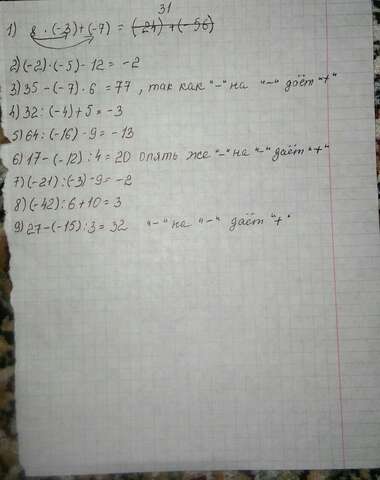 31
1) 8 · (-3)+(-7) = (-24)+(-56)
2)(-2)·(-5)-12= -2
3)35-(-7)·6=77, так как "-" на "-" даёт "+"
4)32:(-4)+5=-3
5)64:(-16)-9=-13
6)17-(-12):4=20 опять же "-" на "-" даёт "+"
7)(-21):(-3)-9=-2
8)(-42):6+10=3
9)27-(-15):3=32 "-" на "-" даёт "+"